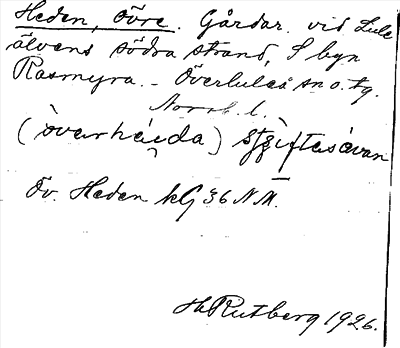 Heden, Övre. Gårdar vid Lule
älvens södra strand, S byn
Rasmyra. - Överluleå sn o. tg.
Norrb. l.
(òvərhéida)
Öv. Heden kG 36 NM.
H Rutberg 1926.